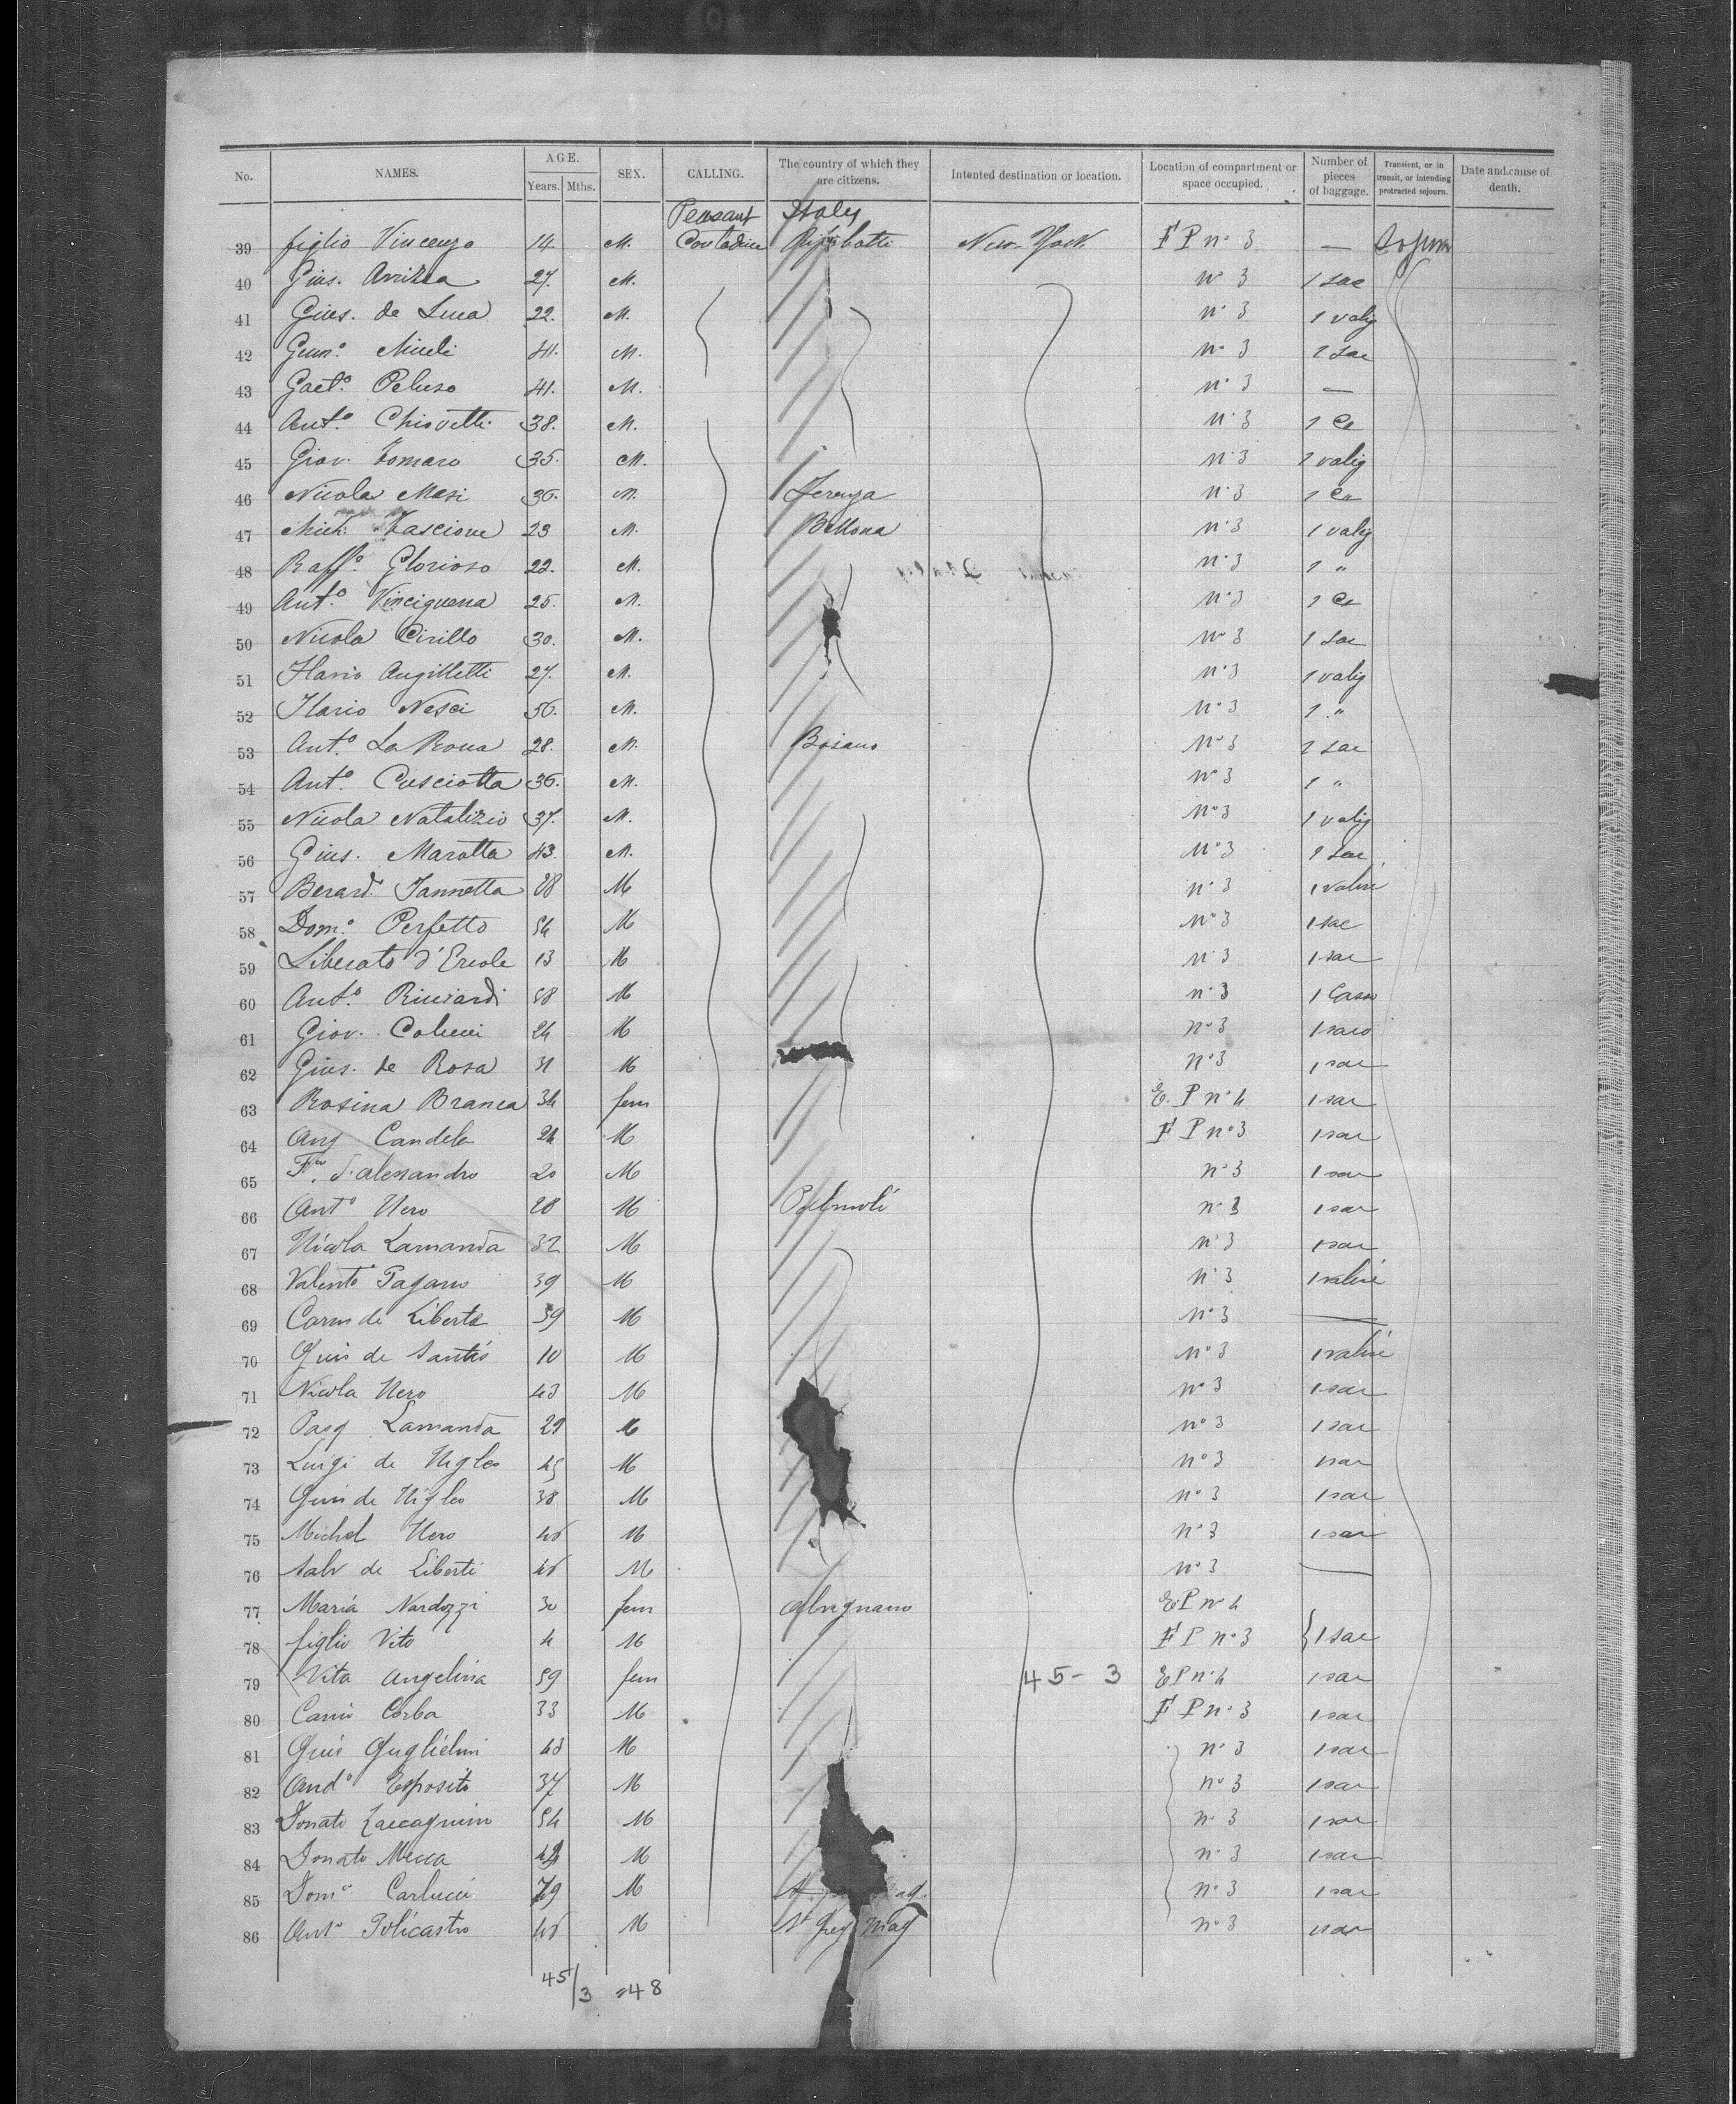 No. NAMES. AGE. Years. Mths. SEX. CALLING. The country of which they are citizens. Intented destination or location. Location of compartment or space occupied. Number of pieces of baggage. Transient, or in transit, or intending protracted sojourn. Date and cause of death.
Peasant Italy
39 figlio Vincenzo 14. M. New-York F P n° 3 —
40 Gius. 27. M. n° 3 1 sac
41 Gius. de Luca 22. M. n° 3 1 valig
42 M. n° 3 1 sac
43 Gaet.° Peluso 41. M. n° 3 —
44 Ant.° Chiovetti 38. M. n° 3 1 Ca
45 Giov. Tomaro 35. M. n° 3 1 valig
46 Nicola Masi 36. M. n° 3 1 Ca
47 Mich. Tascione 23 M. Bellona n° 3 1 valig
48 Raff.° Glorioso 22. M. n° 3 1 "
49 Ant.° Vinciguerra 25. M. n° 3 1 Ca
50 Nicola Cirillo 30. M. n° 3 1 sac
51 Ilario Augilletti 27. M. n° 3 1 valig
52 Ilario Nesci 56. M. n° 3 1 "
53 Ant.° La Rocca 28. M. Boiano n° 3 1 sac
54 Ant.° Cusciotta 36. M. n° 3 1 "
55 Nicola Natalizio 37. M. n° 3 1 valig
56 Gius. Marotta 43. M. n° 3 1 sac
57 Berard. Iannetta 28 M n° 3 1 valise
58 Dom.° Perfetto 54 M n° 3 1 sac
59 Liberato d'Ercole 13 M n° 3 1 sac
60 Ant.° Ricciardi 58 M n° 3 1 Cassa
61 Giov. Colucci 24 M n° 3 1 saco
62 Gius. de Rosa 31 M n° 3 1 sac
63 Rosina Branca 34 fem E. P n° 4 1 sac
64 Ang Candela 24 M F P n° 3 1 sac
65 d'alessandro 20 M n° 3 1 sac
66 Ant° Nero 28 M Palmoli n° 3 1 sac
67 Nicola Lamanda 32 M n° 3 1 sac
68 Valent° Pagano 39 M n° 3 1 valise
69 Carm de Liberto 39 M n° 3 —
70 Gius de Santis 10 M n° 3 1 valise
71 Nicola Nero 43 M n° 3 1 sac
72 Pasq Lamanda 29 M n° 3 1 sac
73 Luigi de Niglio 45 M n° 3 1 sac
74 Gius de Niglio 38 M n° 3 1 sac
75 Michel Nero M n° 3 1 sac
76 Salv de Liberti M n° 3 —
77 Maria Nardozzi 30 fem Alvignano E P n° 4
78 figlio Vito 4 M F P n° 3 1 sac
79 Vita Angelina 59 fem 45-3 E P n° 4 1 sac
80 Corba 33 M F P n° 3 1 sac
81 Gius Guglielmi 43 M n° 3 1 sac
82 And° Esposito 37 M n° 3 1 sac
83 Donato Zaccagnino 54 M n° 3 1 sac
84 Donato Mecca M n° 3 1 sac
85 Dom° Carlucci M n° 3 1 sac
86 Ant° Policastro M St Greg Mag n° 3 1 sac
45/3 =48